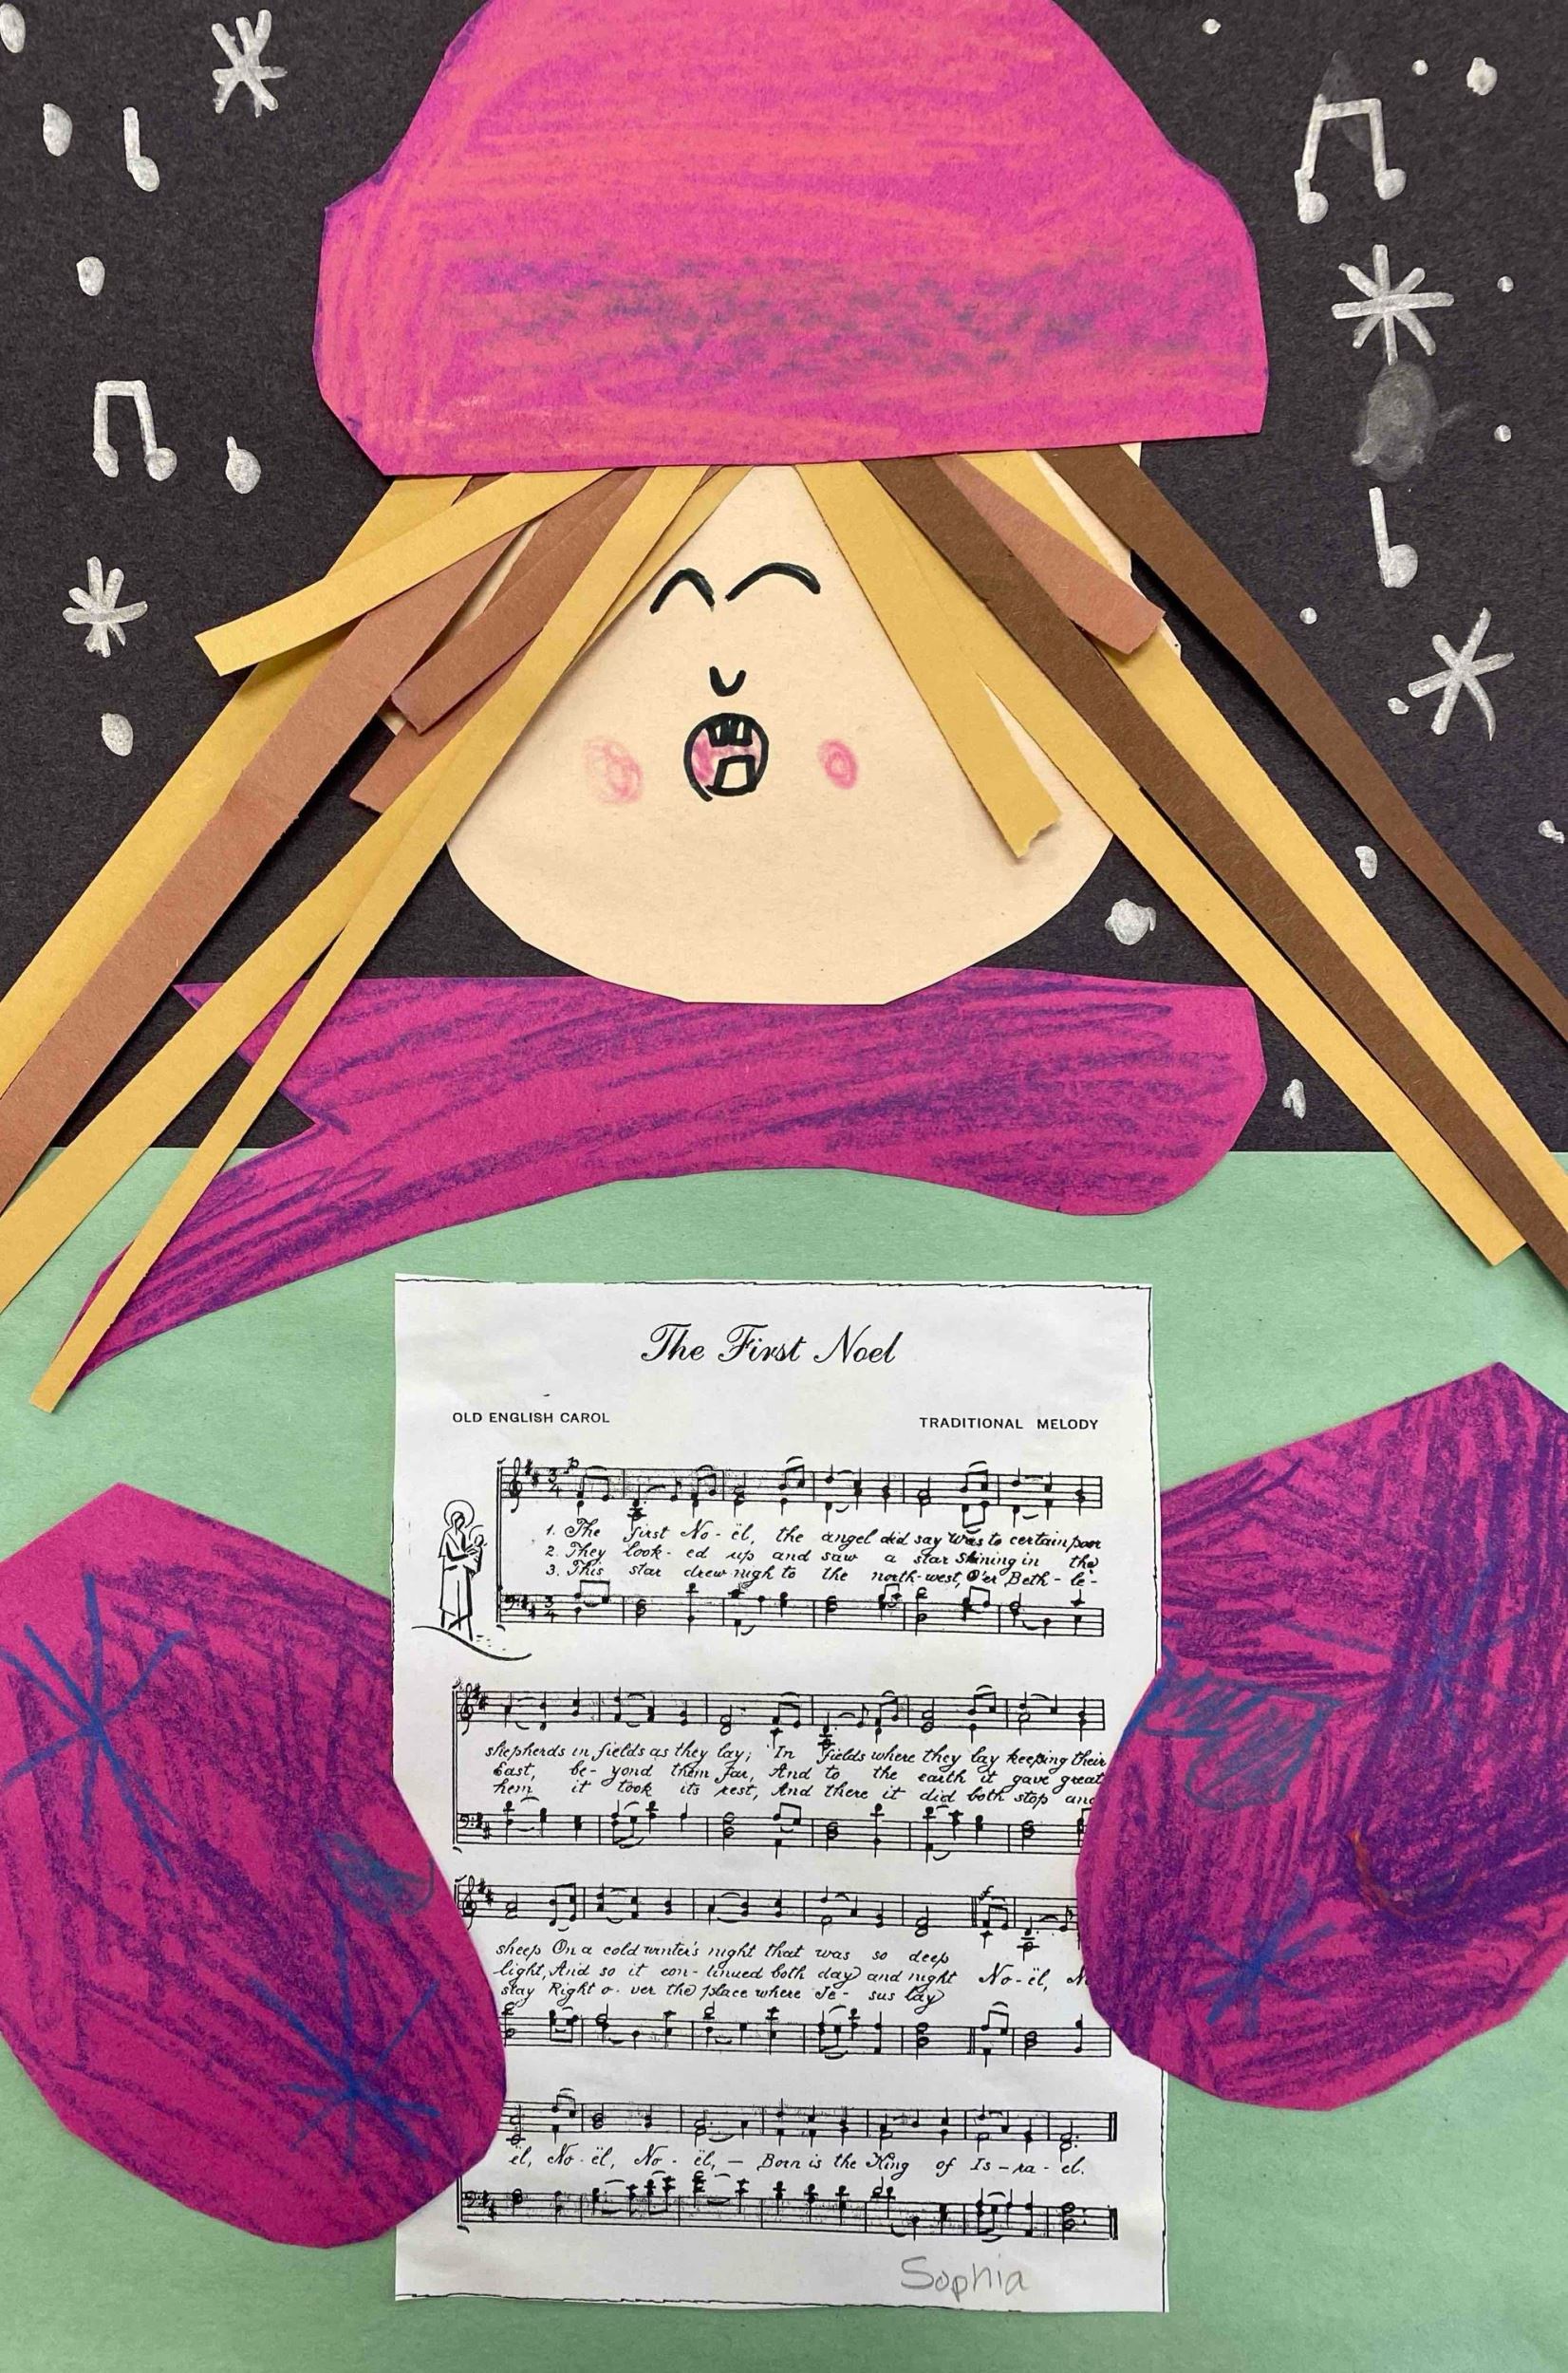 The First Noel
OLD ENGLISH CAROL
TRADITIONAL MELODY
1. The first No-ël, the angel did say Was to certain poor
2. They look-ed up and saw a star Shining in the
3. This star drew nigh to the north-west, O'er Beth-le-
shepherds in fields as they lay; In fields where they lay keeping their
East, be-yond them far, And to the earth it gave great
hem it took its rest, And there it did both stop and
sheep On a cold winter's night that was so deep
light, And so it con-tinued both day and night No-ël, N
stay Right o-ver the place where Je-sus lay
ël, No-ël, No-ël, — Born is the King of Is-ra-el.
Sophia